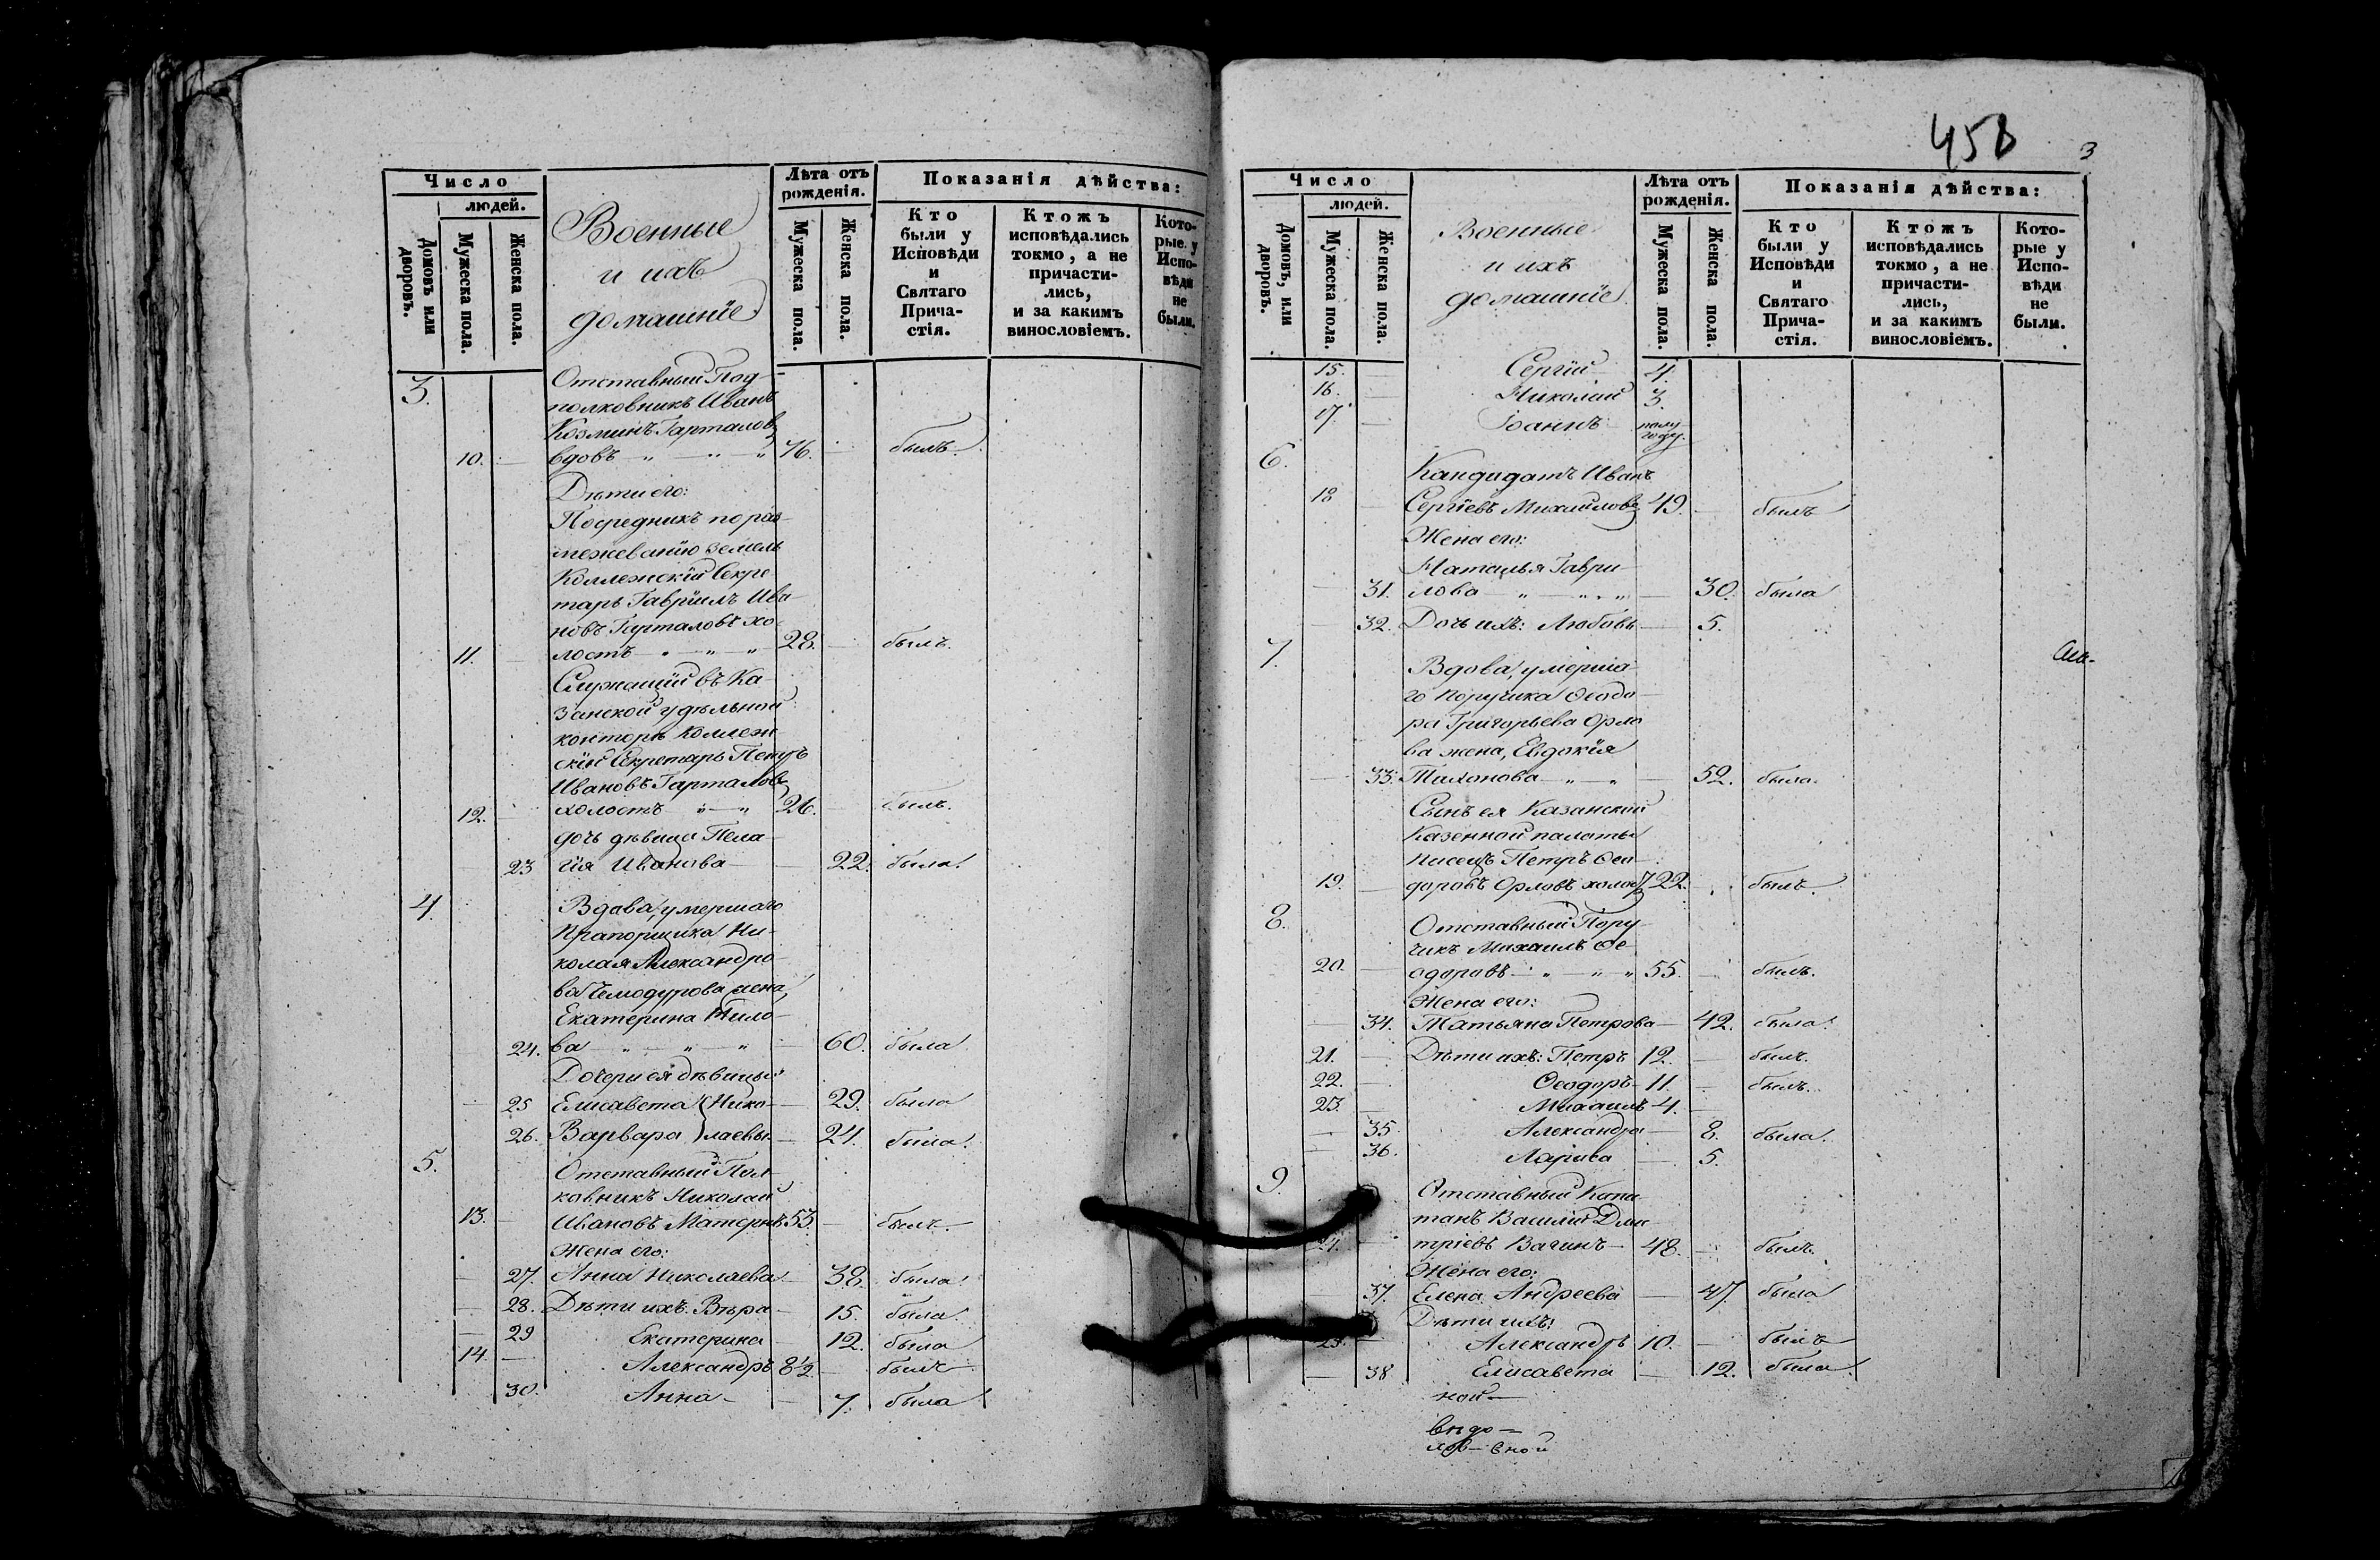 Число
людей.
Домовъ или дворовъ.
Мужеска пола.
Женска пола.
Военные
и ихъ
домашніе
Лѣта отъ рожденія.
Мужеска пола.
Женска пола.
Показанія дѣйства:
Кто были у Исповѣди и Святаго Причастія.
Ктожъ исповѣдались токмо, а не причастились, и за какимъ винословіемъ.
Которые у Исповѣди не были.
3. Отставный Под-
полковникъ Иванъ
Козминъ Гарталовъ
10. — вдовъ „ — „ — „ 76. — былъ.
Дѣти его:
Посредникъ по раз-
межеванію земель
Коллежскій Секре-
тарь Гавріилъ Ива-
новъ Гарталовъ хо-
11. — лостъ „ — „ — „ 28. — былъ.
Служащій въ Ка-
занской удѣльной
конторѣ Коллеж-
скій Секретарь Петръ
Ивановъ Гарталовъ
12. — холостъ „ — „ 26. — былъ.
дочь дѣвица Пела-
— 23 гія Иванова — — 22. была.
4. Вдова, умершаго
Прапорщика Ни-
колая Александро-
ва Чемодурова жена,
Екатерина
— 24. ва „ — „ — „ — 60. была
Дочери ея дѣвицы:
— 25 Елисавета } Нико- — 29. была
26. Варвара } лаевы — 24. была.
5. Отставный Пол-
ковникъ Николай
13. — Ивановъ Матернъ 53. — былъ.
Жена его:
— 27. Анна Николаева — — 38. была.
— 28. Дѣти ихъ: Вѣра — 15. была.
— 29 Екатерина — 12. была
14. — Александръ 8½. — былъ
30. Анна — — 7. была.
458
3
Число
людей.
Домовъ, или дворовъ.
Мужеска пола.
Женска пола.
Военные
и ихъ
домашніе
Лѣта отъ рожденія.
Мужеска пола.
Женска пола.
Показанія дѣйства:
Кто были у Исповѣди и Святаго Причастія.
Ктожъ исповѣдались токмо, а не причастились, и за какимъ винословіемъ.
Которые у Исповѣди не были.
15. — Сергій 4.
16. — Николай 3.
17. — Іоаннъ полу-
году.
6. Кандидатъ Иванъ
18 — Сергіевъ Михайловъ 49. — былъ
Жена его:
Наталья Гаври-
— 31. лова — „ — „ „ — 30. была
— 32. Дочь ихъ: Любовь — 5.
7. Вдова, умерша-
го поручика Ѳеодо-
ра Григорьева Орло-
ва жена, Евдокія
— 33. Тихонова — „ — „ — 52. была.
Сынъ ея Казанской
Казенной палаты
писецъ Петръ Ѳео-
19. — доровъ Орловъ холос. 22. — былъ.
8. Отставный Пору-
чикъ Михаилъ Ѳе-
20. — одоровъ — „ — „ — „ 55. — былъ.
Жена его:
— 34. Татьяна Петрова — 42. была.
21. — Дѣти ихъ: Петръ 12. — былъ.
22. — Ѳеодоръ 11. — былъ.
23. — Михаилъ 4. —
— 35 Александра — 8. была.
— 36. Лариса — 5.
9. Отставный Капи-
танъ Василій Дми-
24. — тріевъ Вагинъ — 48. — былъ.
Жена его:
— 37. Елена Андреева — 47. была
Дѣти ихъ:
25. — Александръ 10. — былъ
— 38 Елисавета — 12. была.
ной —